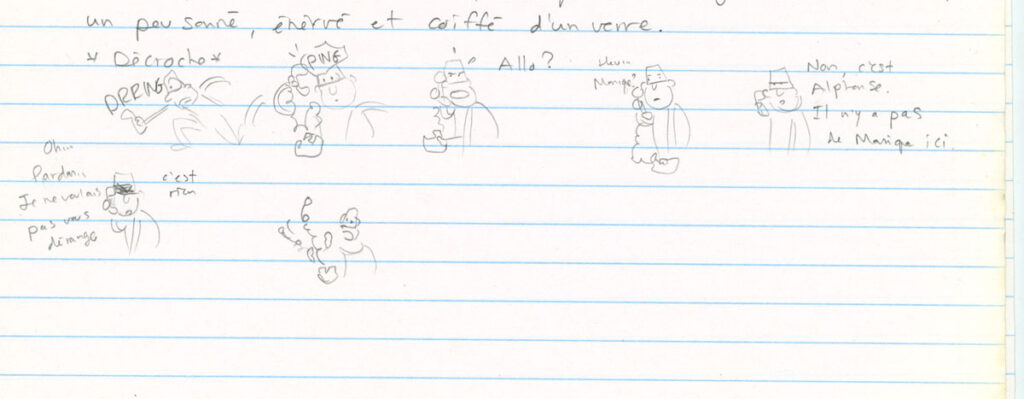 un peu sonné, énervé et coiffé d'un verre.
* Décroche *
DRRING
PING
Allo?
Mariqa?
Non, c'est
Alphonse.
Il n'y a pas
de Mariqa ici.
Oh...
Pardon..
Je ne voulais
pas vous
dérangé
c'est
rien